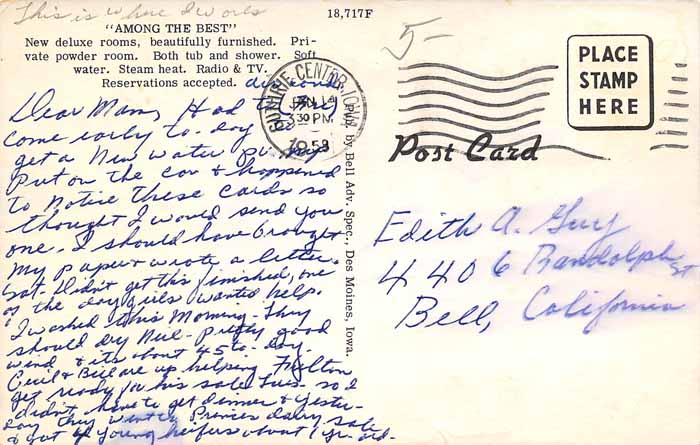 This is where I work
18,717F
"AMONG THE BEST"
New deluxe rooms, beautifully furnished. Pri-
vate powder room. Both tub and shower. Soft
water. Steam heat. Radio & TV.
Reservations accepted.
5-
PLACE
STAMP
HERE
GUTHRIE CENTER, IOWA
JAN 14
3 30 PM
1958
Post Card
Pub. by Bell Adv. Spec., Des Moines, Iowa.
Dear Mam, Had to
come early to-day
get a New water pump
put on the car & happened
to Notice these cards so
thought I would send you
one. I should have brought
my paper & wrote a letter.
Sat. Didn't get this finished, one
of the day girls wanted help.
I washed this Morning. They
should dry Nice - pretty good
wind & its about 45 to-day.
Cecil & Bill are up helping Milton
get ready for his sale Tues. so I
didn't have to get dinner & yester-
day they went to dairy sale
& got 4 young heifers about 1 yr. old.
Edith A. Guy
4406 Randolph St
Bell, California